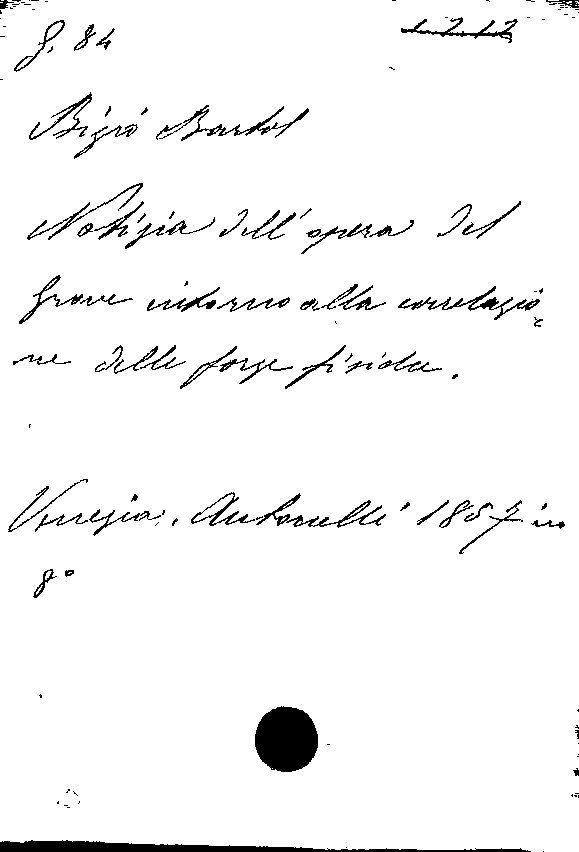 G. 84
1212
Bizio Bartol
Notizia dell'opera del
Grove intorno alla correlazio
ne delle forze fisiche.
Venezia, Antonelli 1857 in
8°